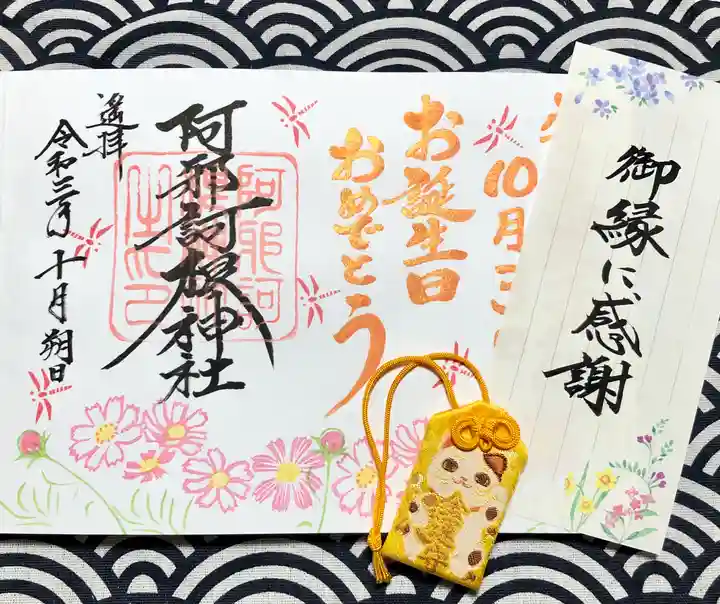 御縁に感謝
10月
お誕生日
おめでとう
阿邪訶根神社
阿邪訶
之印
遙拝
令和三年十月朔日